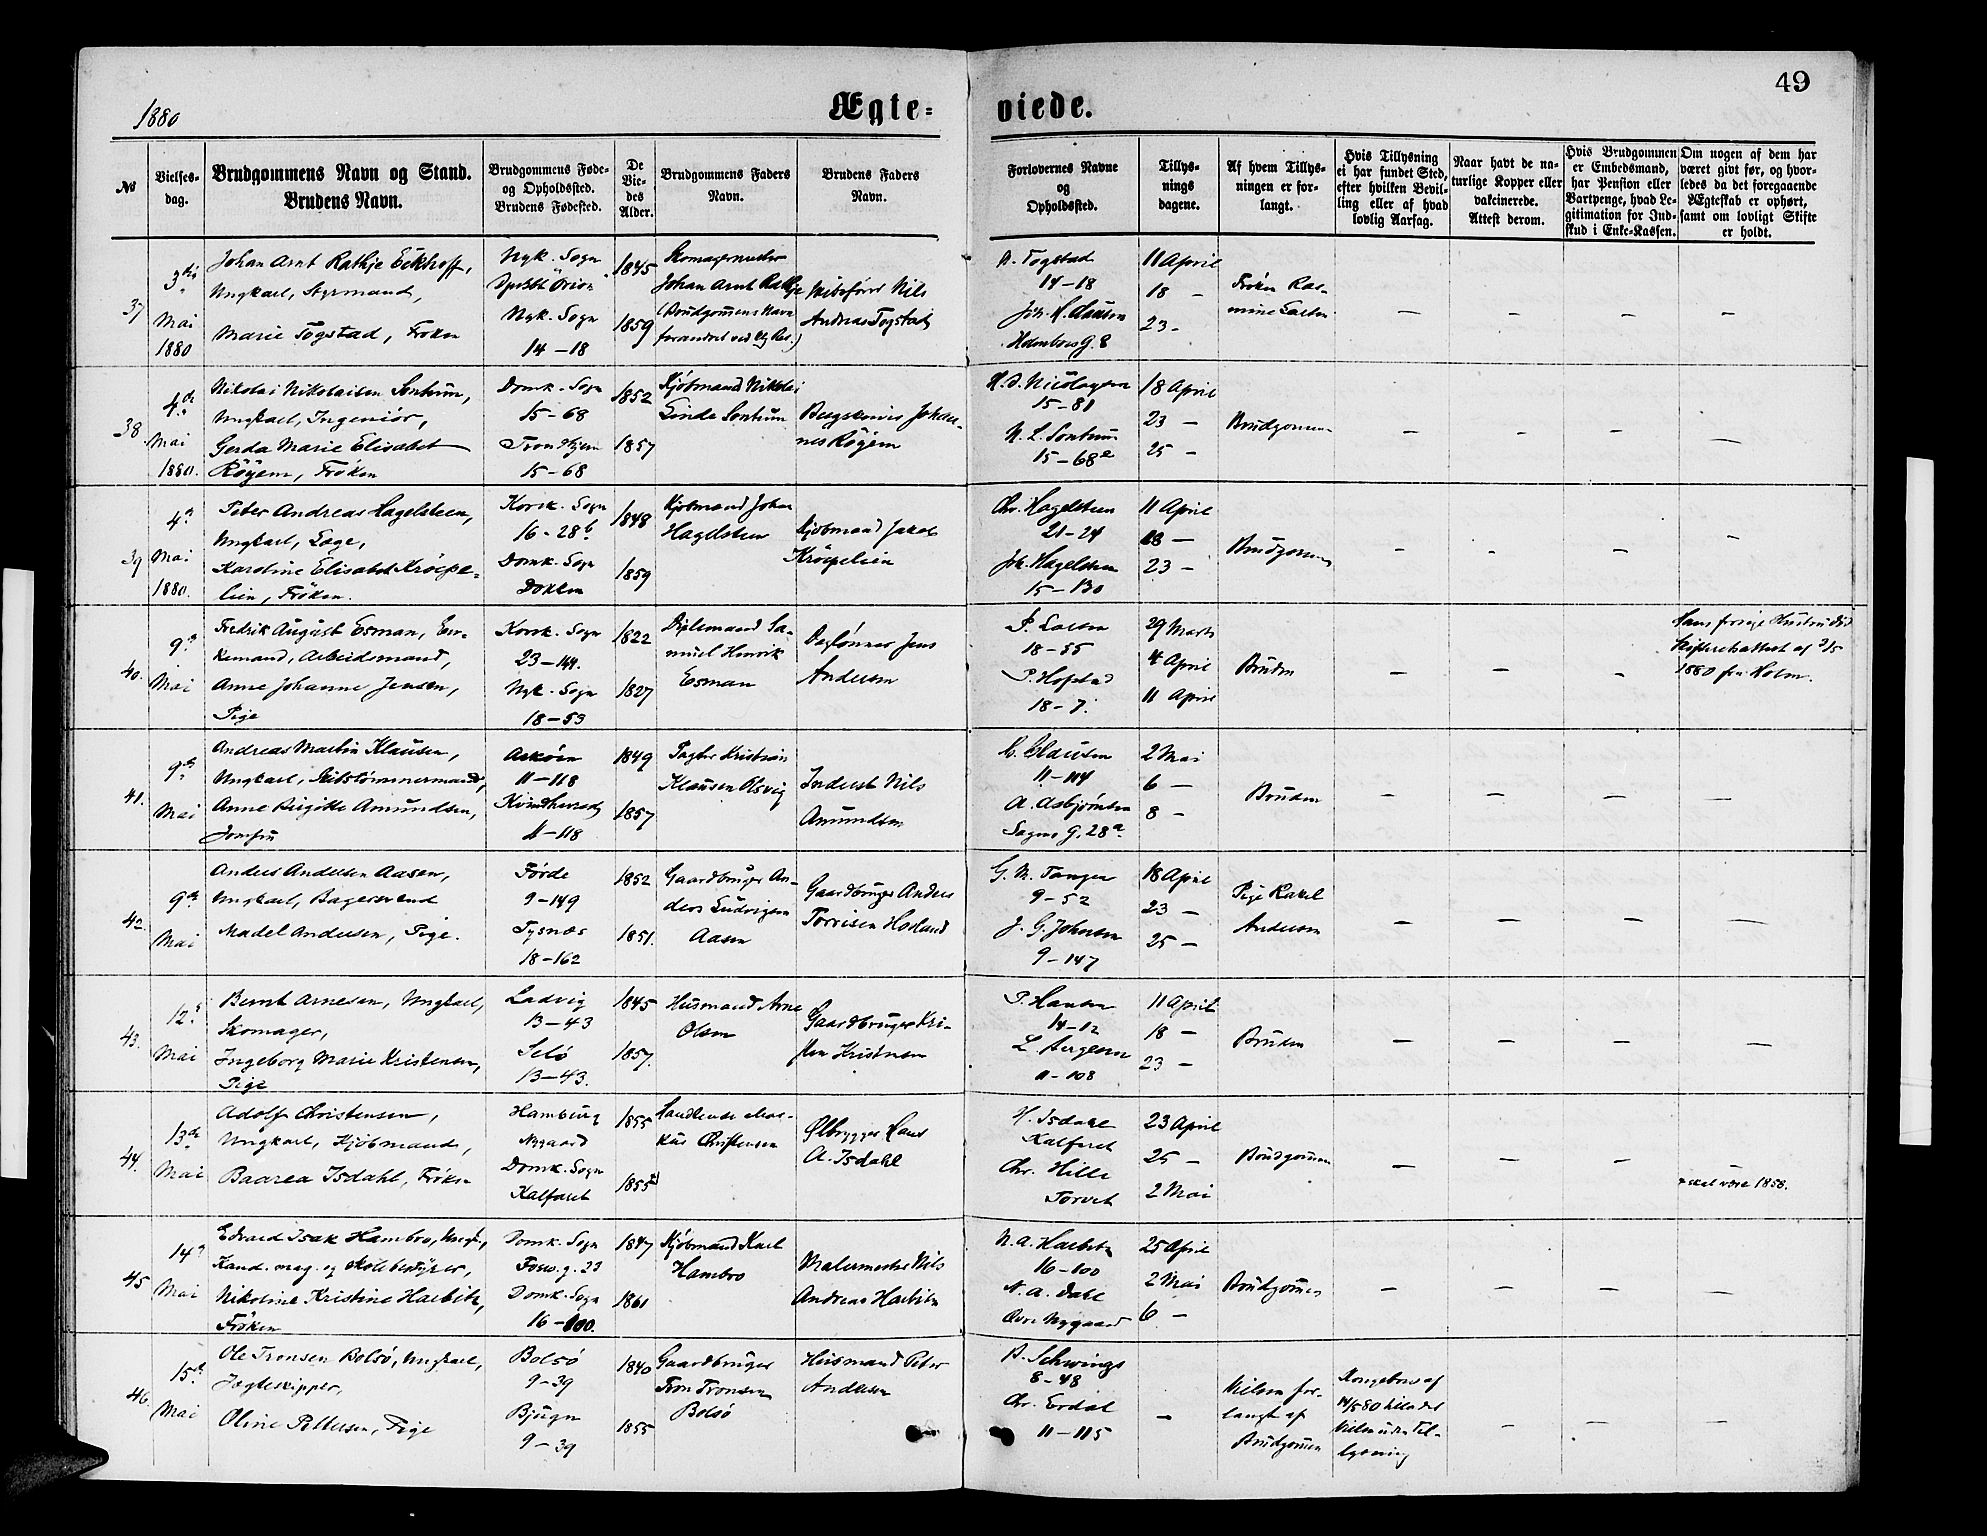 1880
Ægte-
viede.
49
№
Vielses-
dag.
Brudgommens Navn og Stand.
Brudens Navn.
Brudgommens Føde-
og Opholdssted.
Brudens Fødested.
De
Vie-
des
Alder.
Brudgommens Faders
Navn.
Brudens Faders
Navn.
Forlovernes Navne
og
Opholdssted.
Tillys-
nings
dagene.
Af hvem Tillys-
ningen er for-
langt.
Hvis Tillysning
ei har fundet Sted,
efter hvilken Bevil-
ling eller af hvad
lovlig Aarsag.
Naar havt de na-
turlige Kopper eller
vakcinerede.
Attest derom.
Hvis Brudgommen
er Embedsmand,
har Pension eller
Vartpenge, hvad Le-
gitimation for Ind-
skud i Enke-Kassen.
Om nogen af dem har
været givt før, og hvor-
ledes da det foregaaende
Ægteskab er ophørt,
samt om lovligt Skifte
er holdt.
37
3die
Mai
1880
Johan Arnt Rathje Eckhoff,
Ungkarl, Styrmand,
Marie Togstad, Frøken
Nyk. Sogn
Orion
Nyk. Sogn
14-18
1845
1859
Skomagermester
Johan Arnt Rathje
(Brudgommens Navn
forandret ved Kg Res.)
Skibsfører Nils
Andreas Togstad
A. Togstad
14-18
Holmboes g. 8
11 April
18 -
23 -
Frøken Ras-
mine Larsen
38
4de
Mai
1880.
Nikolai Nikolaisen Sontum,
Ungkarl, Ingeniør,
Gerda Marie Elisabet
Röyem, Frøken
Domk. Sogn
15-68
Trondhjem
15-68
1852
1857
Kjøbmand Nikolai
Linde Sontum
Johan-
nes Röyem
15-81
N. L. Sontum
15-68a
18 April
23 -
25 -
Brudgommen
39
4de
Mai
1880.
Peter Andreas Hagelsteen,
Ungkarl, Læge,
Karoline Elisabet Kröepe-
lien, Frøken.
Korsk. Sogn
16-28b
Domk. Sogn
Dokken
1848
1859
Kjøbmand Johan
Hagelsteen
Kjøbmand Jakob
Kröepelien
Chr. Hagelsteen
21-24
Joh. Hagelsteen
15-130
11 April
18 -
23 -
Brudgommen
40.
9de
Mai
Fredrik August Esman, En-
kemand, Arbeidsmand,
Anne Johanne Jensen,
Pige
Korsk. Sogn
23-144.
Nyk. Sogn
18-53
1822
1827
Sa-
muel Henrik
Esman
Jens
Andersen
P. Larsen
18-55
P. Hopstad
18-7.
29 Marts
4 April
11 April
Bruden
Hans forrige Hustru død
Skifteretsattest af 3/5
1880 fra Holm.
41.
9de
Mai
Andreas Martin Klausen,
Ungkarl, Skibstømmermand,
Anne Birgitte Amundsen,
Jomfru
Askøen
11-118
Kvindherred
11-118
1849
1857
Kristian
Klausen
Inderst Nils
Amundsen
C. Clausen
11-114
A. Asbjørnsen
28a
2 Mai
6 -
8 -
Bruden
42.
9de
Mai
Anders Andersen Aasen,
Ungkarl, Bagersvend
Madel Andersen, Pige.
Førde
9-149
Tysnæs
18-162
1852
1851.
Gaardbruger An-
ders Ludvigsen
Aasen
Gaardbruger Anders
G. M. Tanger
9-52
J. G. Johnsen
9-147
18 April
23 -
25 -
Pige Kael
Andersen
43.
12te
Mai
Bernt Arnesen, Ungkarl,
Skomager,
Ingeborg Marie Kristensen,
Pige
Ladvig
13-43
Selö
13-43.
1845
1857.
Husmand Arne
Olsen
Gaardbruger Kri-
sten Kristensen
P. Hansen
14-12
L. Bergesen
11-108
11 April
18 -
23 -
Bruden
44.
13de
Mai
Adolf Christensen,
Ungkarl, Kjöbmand,
Baarea Isdahl, Frøken
Hamburg
Nygaard
Domk. Sogn
Kalfaret
1855
1855x
Handlende Mar-
kus Christensen
Ølbrygger Hans
A. Isdahl
H. Isdahl
Kalfaret
Chr. Hille
Torvet
23 April
25 -
2 Mai
Brudgommen
x skal være 1858.
45
14de
Mai
Edvard Isak Hambro, Ungk.,
Kand. mag. og Skolebestyrer,
Nikoline Kristine Harbitz,
Frøken
Domk. Sogn
Foss. g. 23
Domk. Sogn
16-100.
1847
1861
Kjøbmand Karl
Hambro
Malermester Nils
Andreas Harbitz
N. A. Harbitz
16-100
N. A. Dahl
Øvre Nygaard
25 April
2 Mai
6 -
Brudgommen
46.
15de
Mai
Ole Tronsen Bolsö, Ungkarl,
Jægteskipper,
Oline Pettersen, Pige
Bolsö
9-39
Bjugn
9-39
1840
1855
Gaardbruger
Tron Tronsen
Bolsö
Husmand Peter
Andersen
A. Schwings
8-48
Chr. Erdal
11-115
Vielsen for-
langt af
Brudgommen
Kongebrev af
14/5 80 tillader
Vielsen uden Til-
lysning